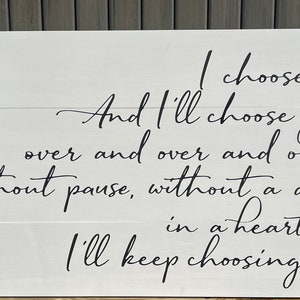 I choose
And I'll choose
over and over and o
hout pause, without a d
in a heart
I'll keep choosing